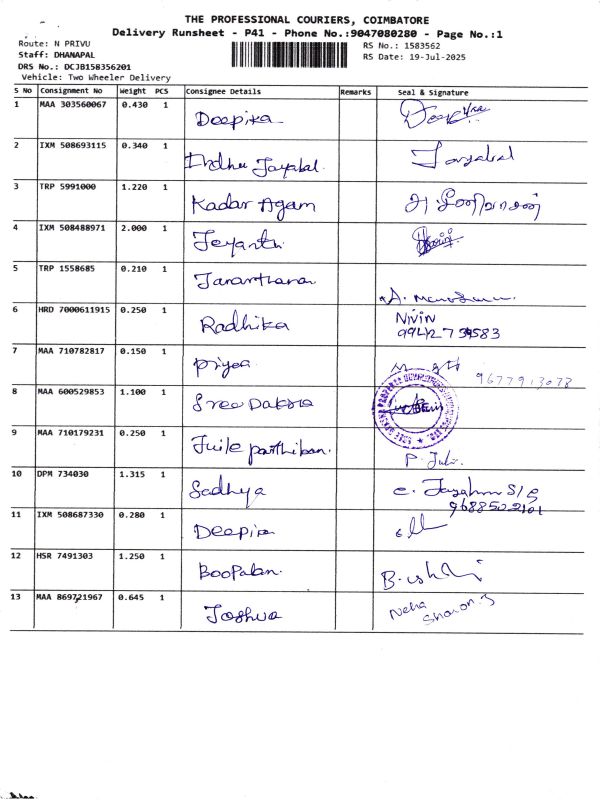 THE PROFESSIONAL COURIERS, COIMBATORE
Delivery Runsheet - P41 - Phone No.:9047080280 - Page No.:1
Route: N PRIVU
RS No.: 1583562
Staff: DHANAPAL
RS Date: 19-Jul-2025
DRS No.: DCJB158356201
Vehicle: Two Wheeler Delivery
S No Consignment No Weight PCS Consignee Details Remarks Seal & Signature
1 MAA 303560067 0.430 1 Deepika
2 IXM 508693115 0.340 1 Indhu Jayabal Jayabal
3 TRP 5991000 1.220 1 Kadar Agam அ சீனிவாசன்
4 IXM 508488971 2.000 1 Jeyanthi
5 TRP 1558685 0.210 1
6 HRD 7000611915 0.250 1 Radhika Nivin
7 MAA 710782817 0.150 1 Priya 9677913078
8 MAA 600529853 1.100 1 Sree Daksha
9 MAA 710179231 0.250 1 Juile parthiban. P. Juli.
10 DPM 734030 1.315 1 Sadhya
11 IXM 508687330 0.280 1 Deepika
12 HSR 7491303 1.250 1 Boopalan.
13 MAA 869721967 0.645 1 Joshua Neha
Sharon.J